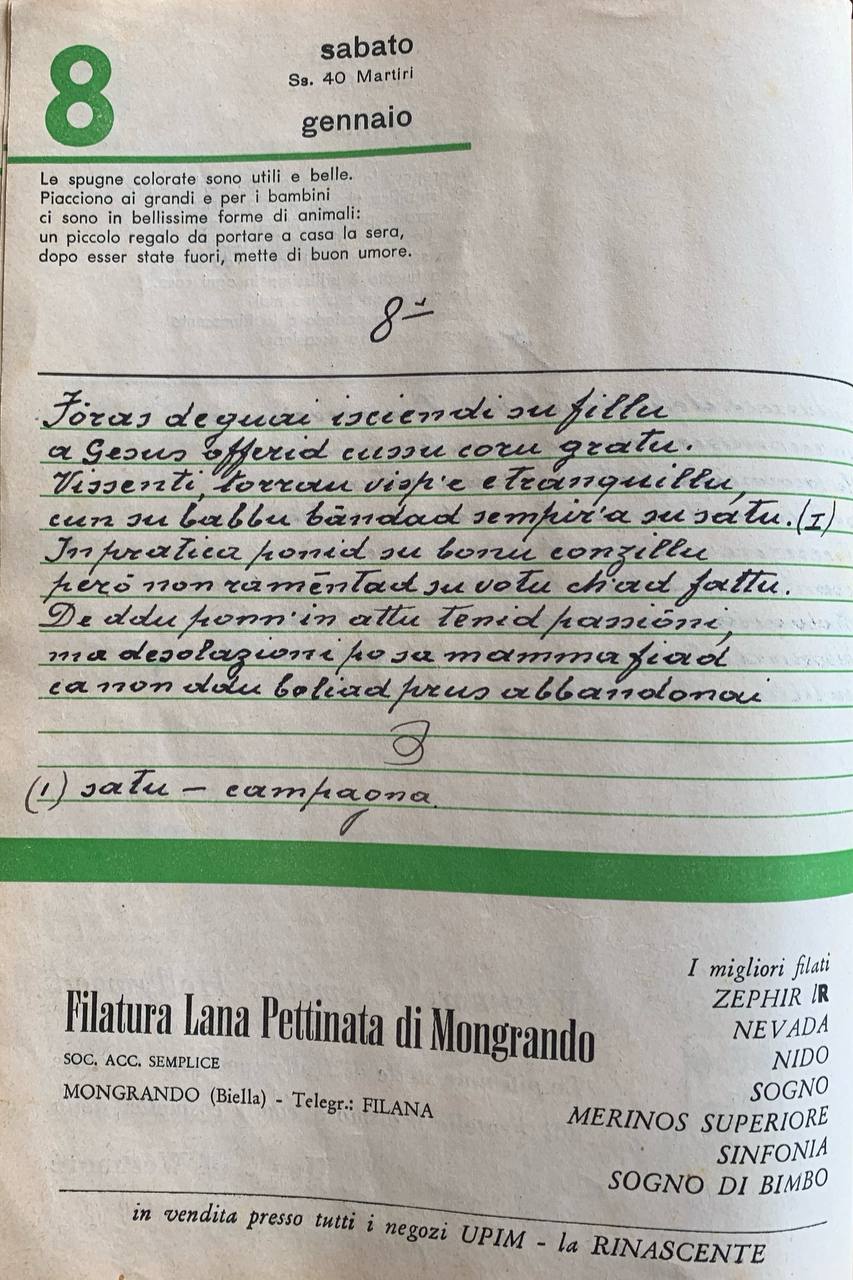 8
sabato
Ss. 40 Martiri
gennaio
Le spugne colorate sono utili e belle.
Piacciono ai grandi e per i bambini
ci sono in bellissime forme di animali:
un piccolo regalo da portare a casa la sera,
dopo esser state fuori, mette di buon umore.
8ˣ
Föras de guai isciendi su fillu
a Gesus offerid cussu coru gratu.
Vissenti, torrau visp'e e tranquillu,
cun su babbu bāndad sempir'a su sātu. (I)
In pratica ponid su bonu conzillu
però non ramēntad su votu ch'ad fattu.
De ddu ponn'in attu tenid passiōni,
ma desolazioni po sa mamma fiad
ca non ddu boliad prus abbandonai
(1) satu - campagna.
Filatura Lana Pettinata di Mongrando
SOC. ACC. SEMPLICE
MONGRANDO (Biella) - Telegr.: FILANA
I migliori filati
ZEPHIR IR
NEVADA
NIDO
SOGNO
MERINOS SUPERIORE
SINFONIA
SOGNO DI BIMBO
in vendita presso tutti i negozi UPIM - la RINASCENTE